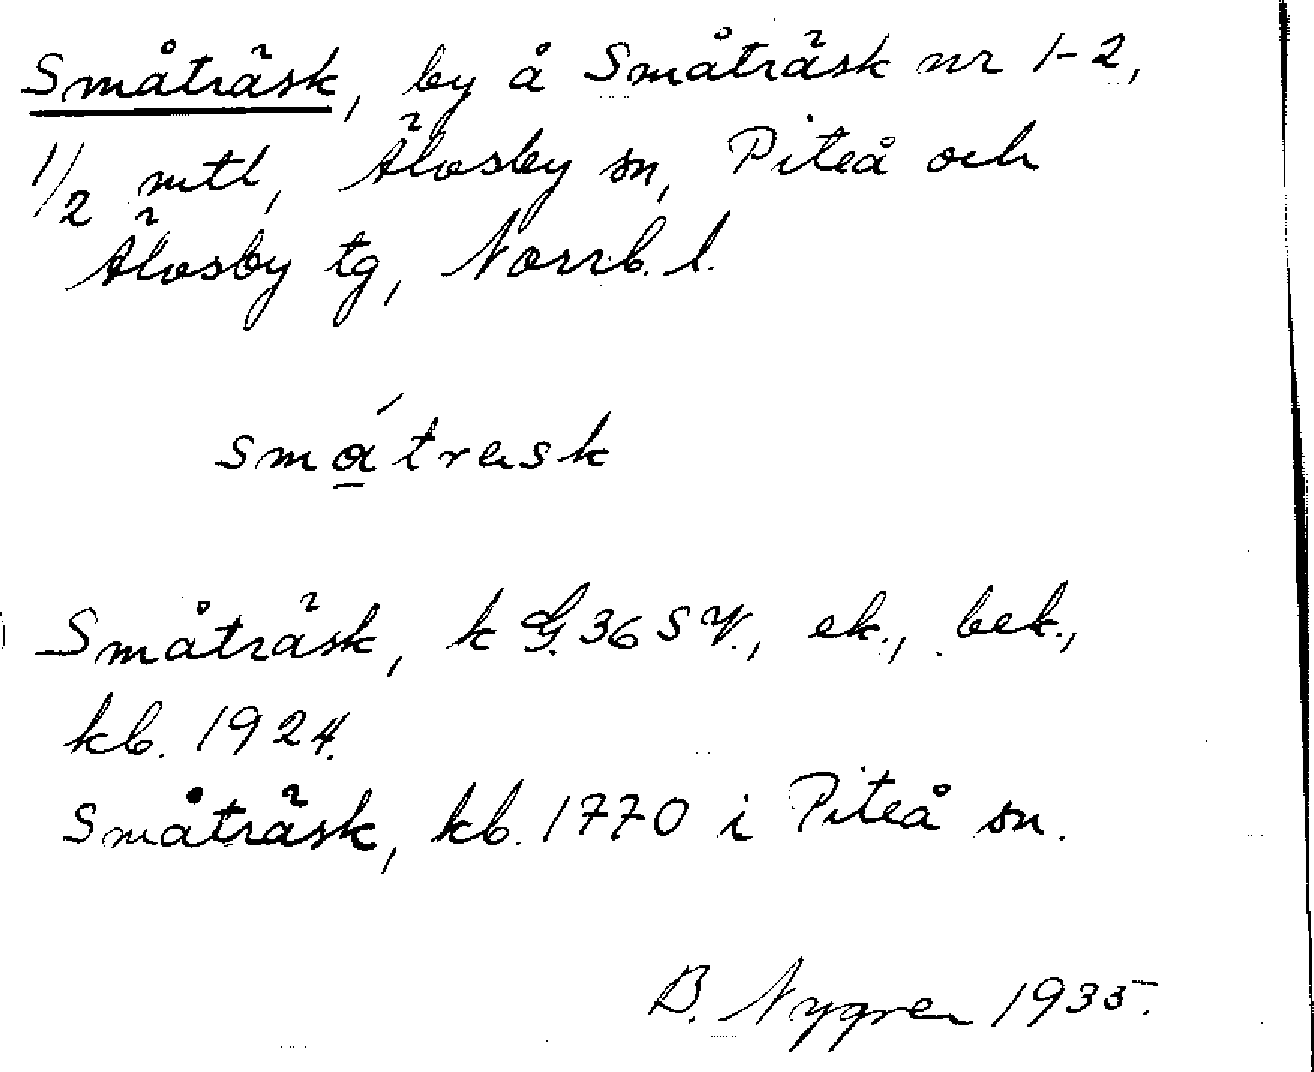 Småträsk, by å Småträsk nr 1-2,
1/2 mtl, Älvsby sn, Piteå och
Älvsby tg, Norrb. l.
smá̱trask
Småträsk, k G. 36 SV., ek., bek.,
kb. 1924.
Småträsk, kb. 1770 i Piteå sn.
B. Nygren 1935.